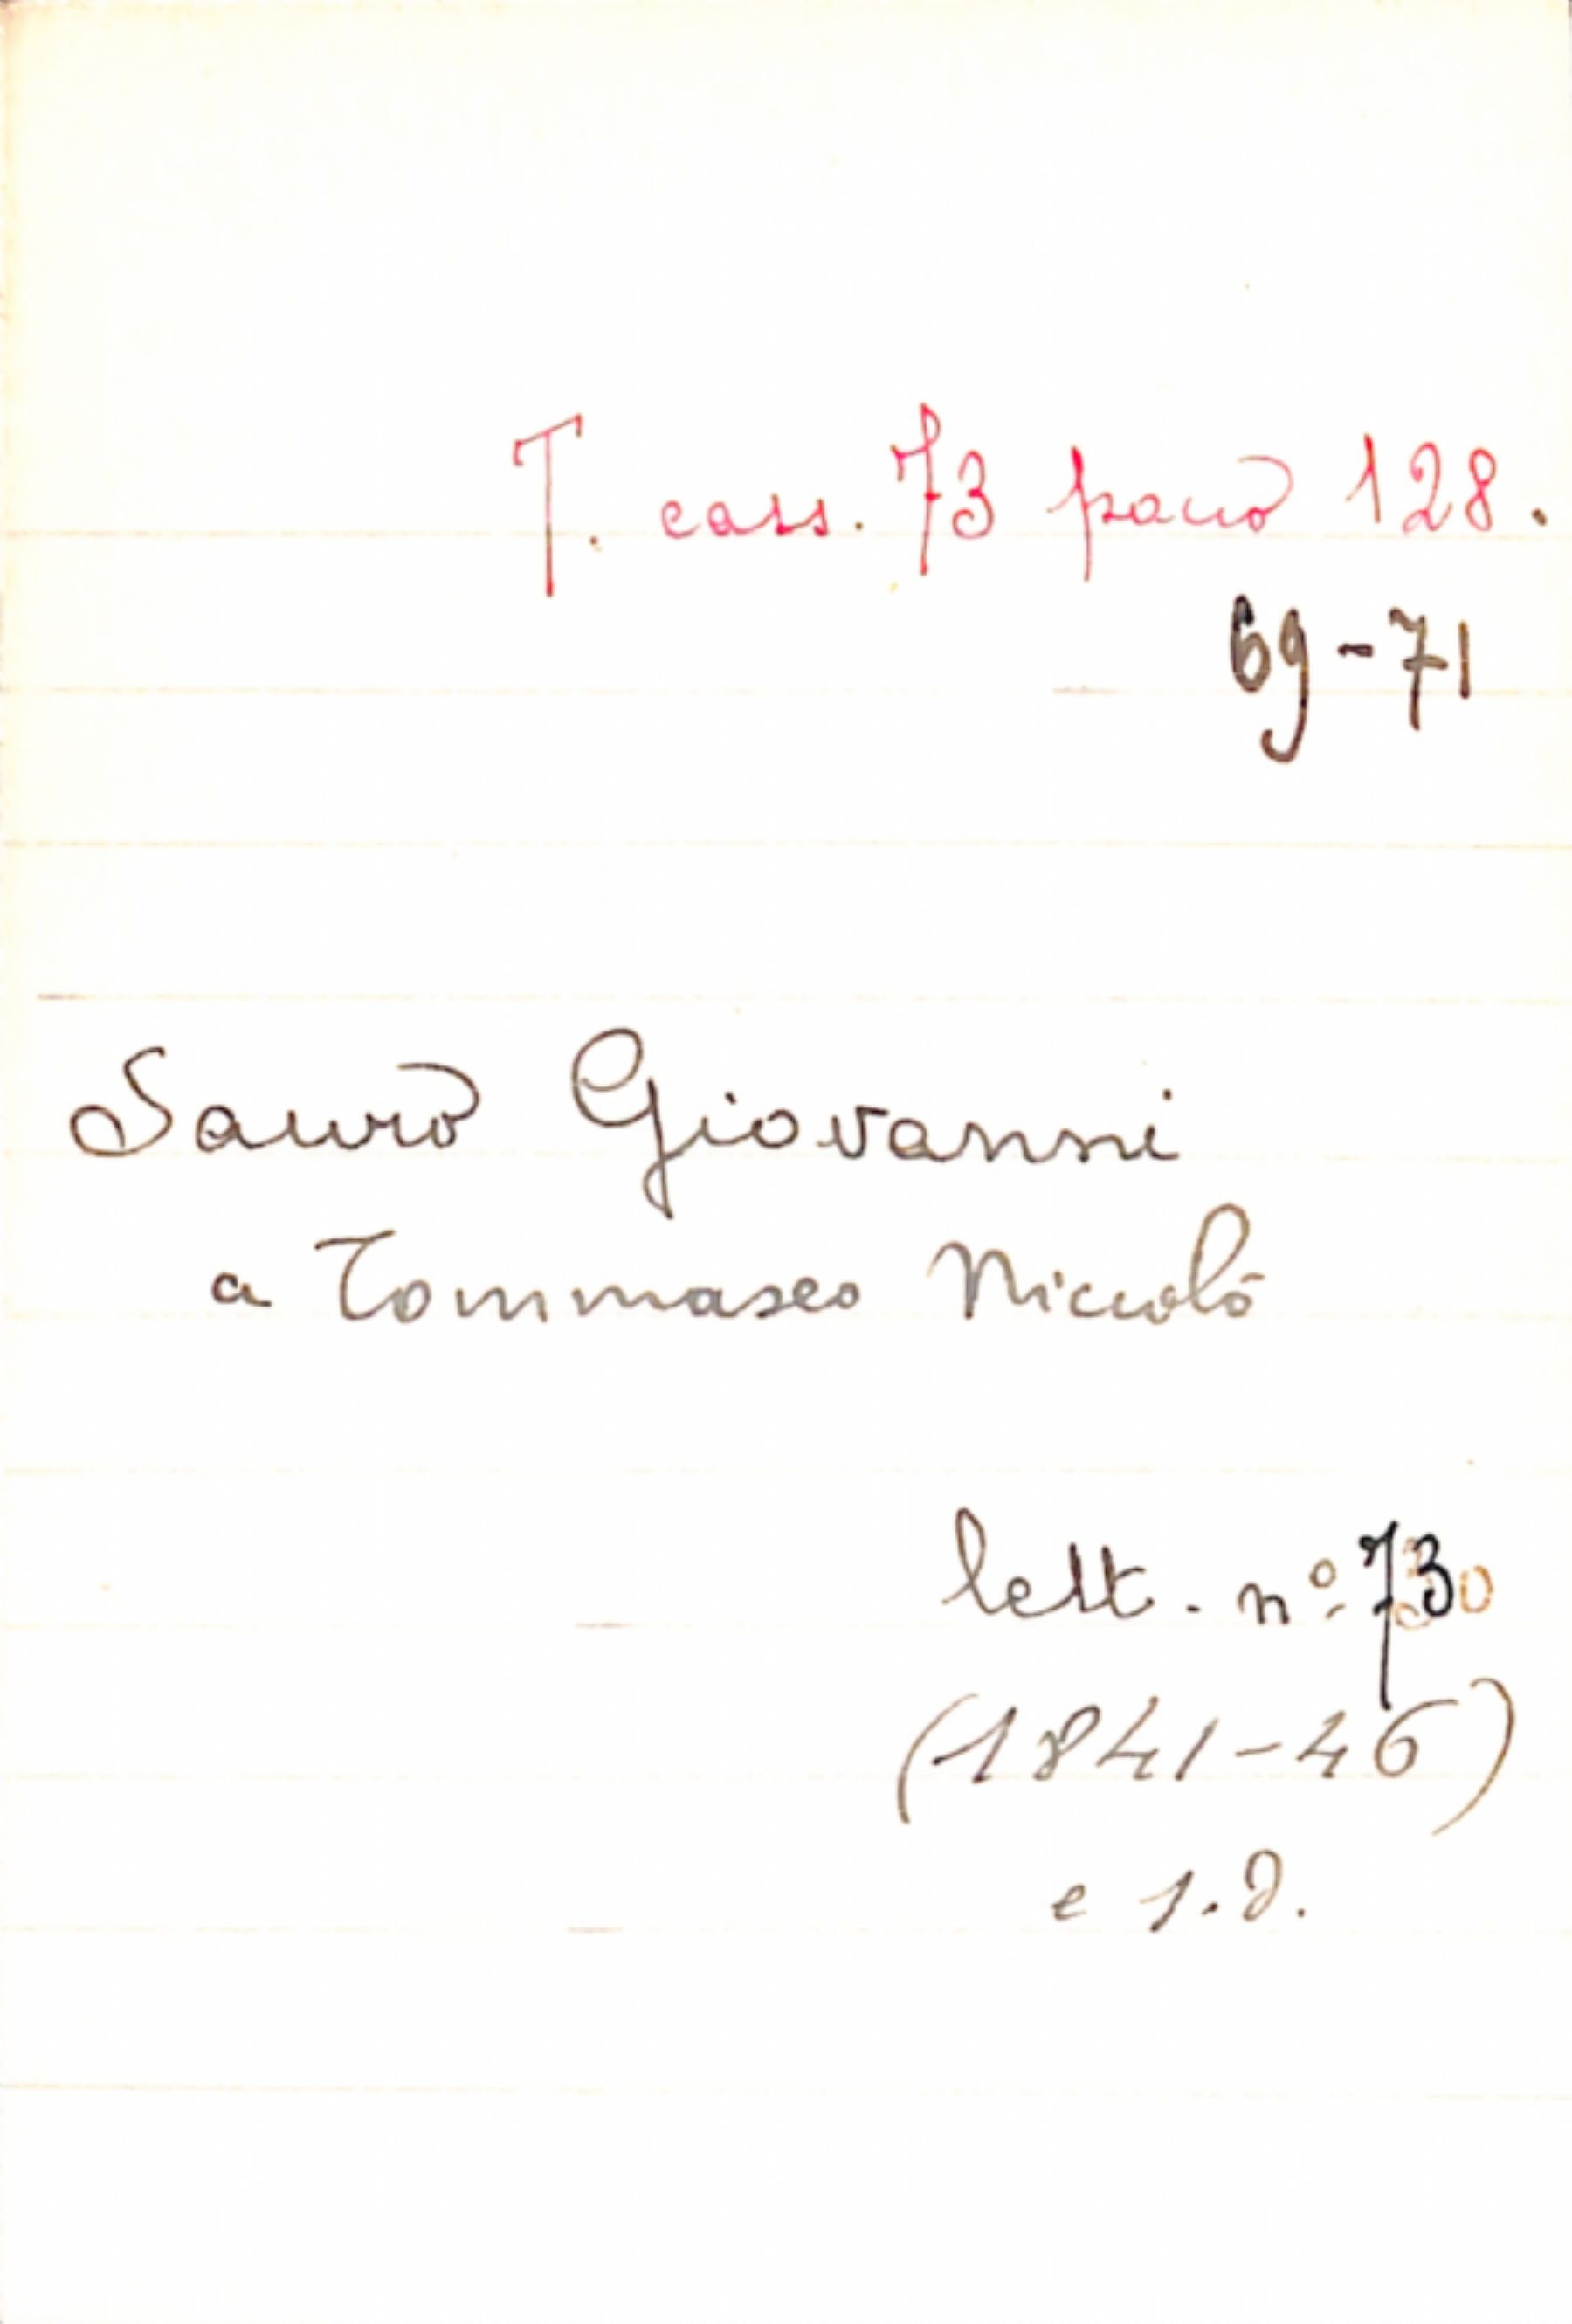 T. cass. 73 pacco 128.
69-71
Sauro Giovanni
a Tommaseo Niccolò
lett. nº 730
(1841-46)
e s.d.